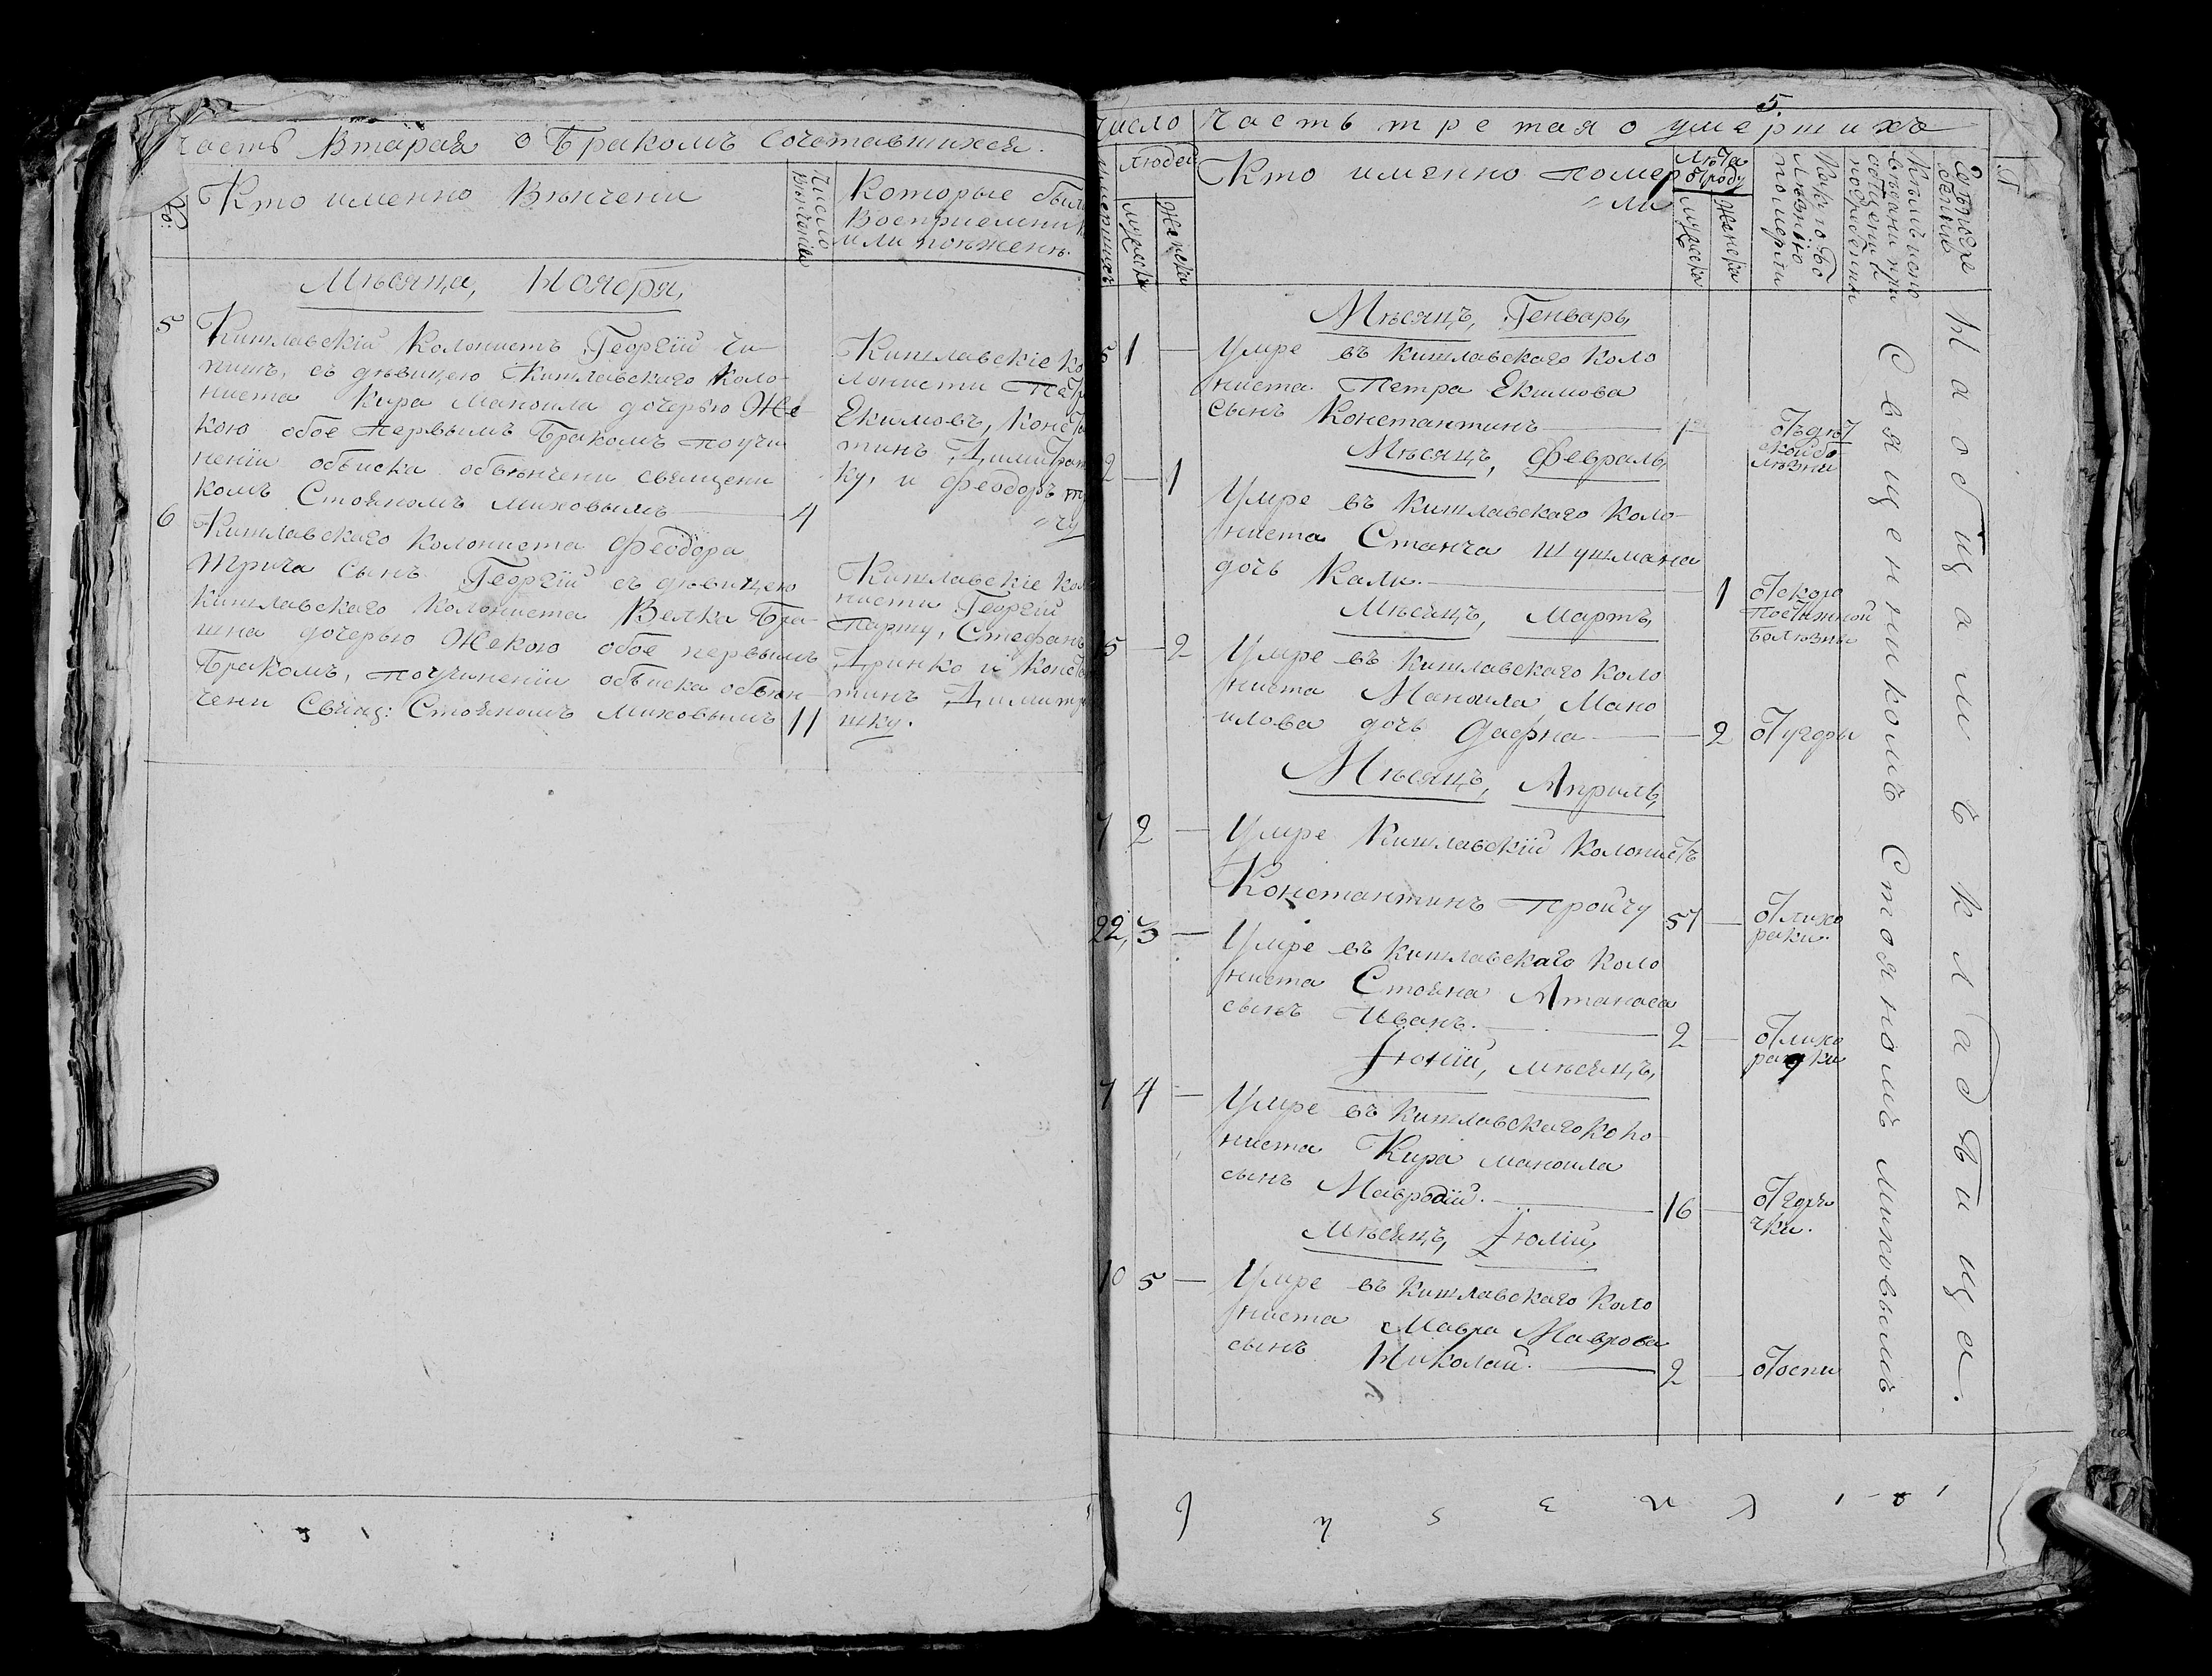 Часть Втарая о Бракомъ Сочетавшихся.
Кто именно Вѣнчени
Число Вѣнчанія
Которые были
Восприемни
или поѣжене.
Мѣсяца, Ноября,
5
Кишлавскій Колонистъ Георгій Чи-
шъ, съ дѣвицею Кишлавскаго Коло-
ниста Кира Маноила дочерью Же-
кою обое первымъ бракомъ поучи
неніи обыска обвѣнчени священи
комъ Стояномъ Миховымъ
4
Кишлавскіе Ко
лонисти Петр
Екимовъ, Конста
тинъ Димитра
ку, и Феодоръ
6
Кишлавскаго Колониста Феодора
Трича сынъ Георгій съ дѣвицею
Кишлавскаго Колониста Велка Бра-
шна дочерью Жекою обое первымъ
Бракомъ, поучинении обыска обвѣн-
чени Свящ: Стояномъ Миховымъ
11
Кишлавскіе Коло
нисти Георгій
Парту, Стефанъ
Дринко и Конста
тинъ Димитр
шку.
5.
Число
Часть третая о умершихъ
умершихъ
людей
мужеска
женска
Кто именно помер
"ли
Лѣта
отроду
мужеска
женска
Какою бо
лѣзнію
померли
Кѣмъ испо
вѣдани при
общени и
погребенни
Гдѣ погре
бении
Мѣсяцъ, Генварь,
5 1 —
Умре въ Кишлавскаго Коло
ниста Петра Екимова
сынъ Константинъ
1
Отъ дѣт
скои бо
лѣзни
Мѣсяцъ, Февраль,
2 — 1
Умре въ Кишлавскаго Коло-
ниста Станча Шушмана
дочь Кали.
— 1
От скоро
постижной
Болѣзны
Мѣсяцъ, Мартъ,
15 — 2
Умре въ Кишлавскаго Коло
ниста Маноила Мано
илова дочь Дафна
— 2
От угоры
Мѣсяцъ, Априль,
7 2 —
Умре Кишлавскій Колонистъ
Константинъ Пройчу
57 —
От лихо
раки.
22, 3 —
Умре въ Кишлавскаго Коло
ниста Стояна Атанаса
сынъ Иванъ.
2 —
От лихо
радки
Іюній, мѣсяцъ,
7 4 —
Умре въ Кишлавскаго Коло-
ниста Кира Маноила
сынъ Мавродій.
16 —
От горя
чки.
Мѣсяцъ, Іюлій,
10 5 —
Умре въ Кишлавскаго Коло
ниста Мавра Маврова
сынъ Николай.
2 —
От оспи
Священникомъ Стояномъ Миховымъ.
На общамъ кладбища.